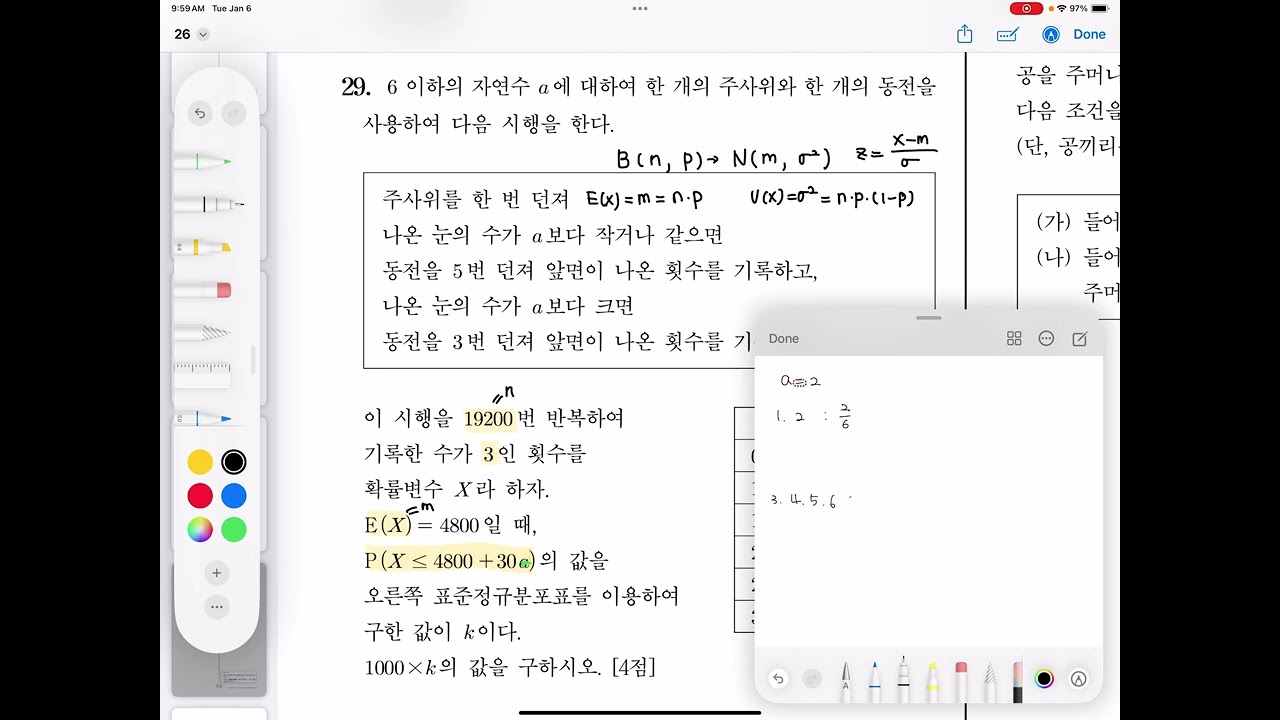 9:59 AM Tue Jan 6
97%
26
Done
29. 6 이하의 자연수 a에 대하여 한 개의 주사위와 한 개의 동전을
사용하여 다음 시행을 한다.
B(n, p) → N(m, σ²) z = x-m/σ
주사위를 한 번 던져 E(x) = m = n·p V(x) = σ² = n·p·(1-p)
나온 눈의 수가 a보다 작거나 같으면
동전을 5번 던져 앞면이 나온 횟수를 기록하고,
나온 눈의 수가 a보다 크면
동전을 3번 던져 앞면이 나온 횟수를 기
n
이 시행을 19200번 반복하여
기록한 수가 3인 횟수를
확률변수 X라 하자.
m
E(X) = 4800일 때,
P(X ≤ 4800 + 30a)의 값을
오른쪽 표준정규분포표를 이용하여
구한 값이 k이다.
1000×k의 값을 구하시오. [4점]
공을 주머니
다음 조건을
(단, 공끼리
(가) 들어
(나) 들어
주머
Done
a = 2
1. 2 : 2/6
3. 4. 5. 6